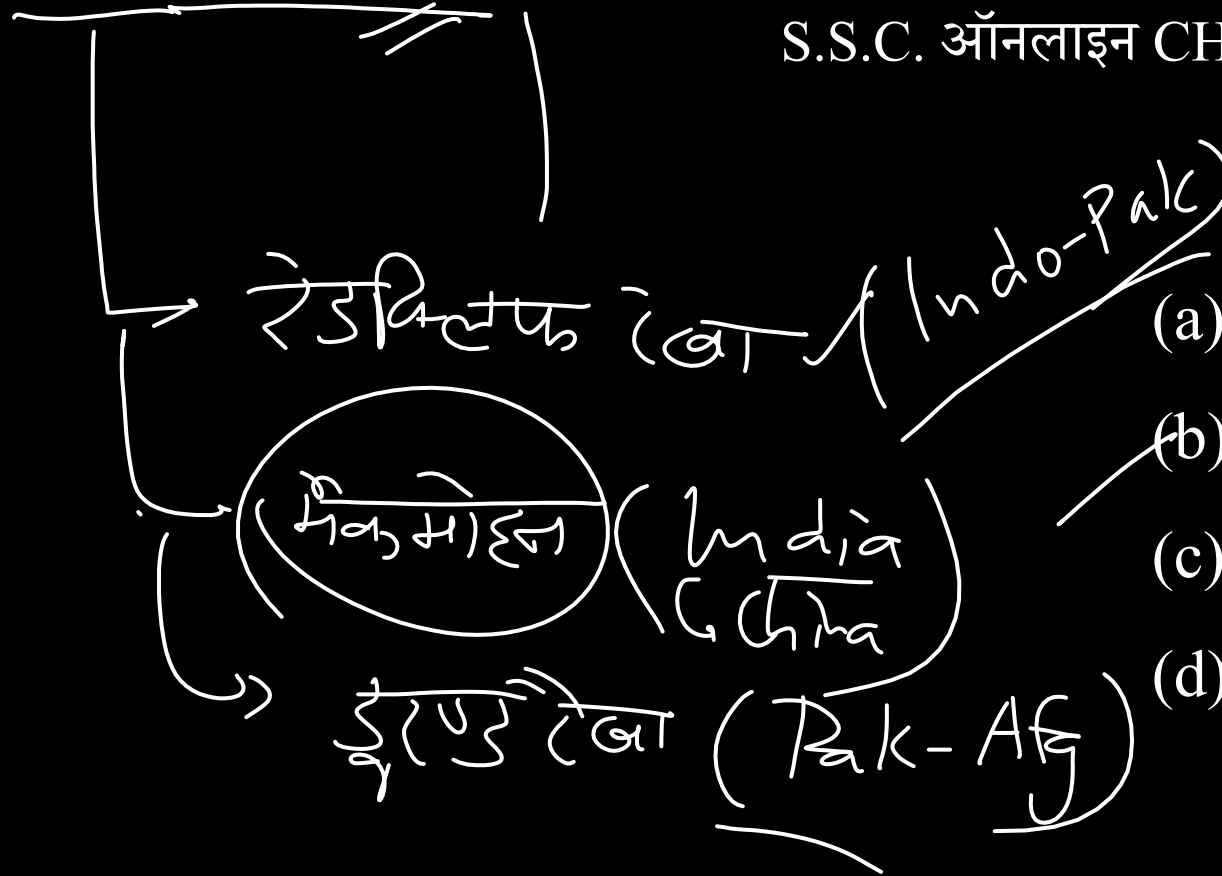 S.S.C. ऑनलाइन CH
रेडक्लिफ रेखा (Indo-Pak)
(a)
(b)
मैकमोहन (India
China)
(c)
(d)
डूरण्ड रेखा (Pak-Afg)